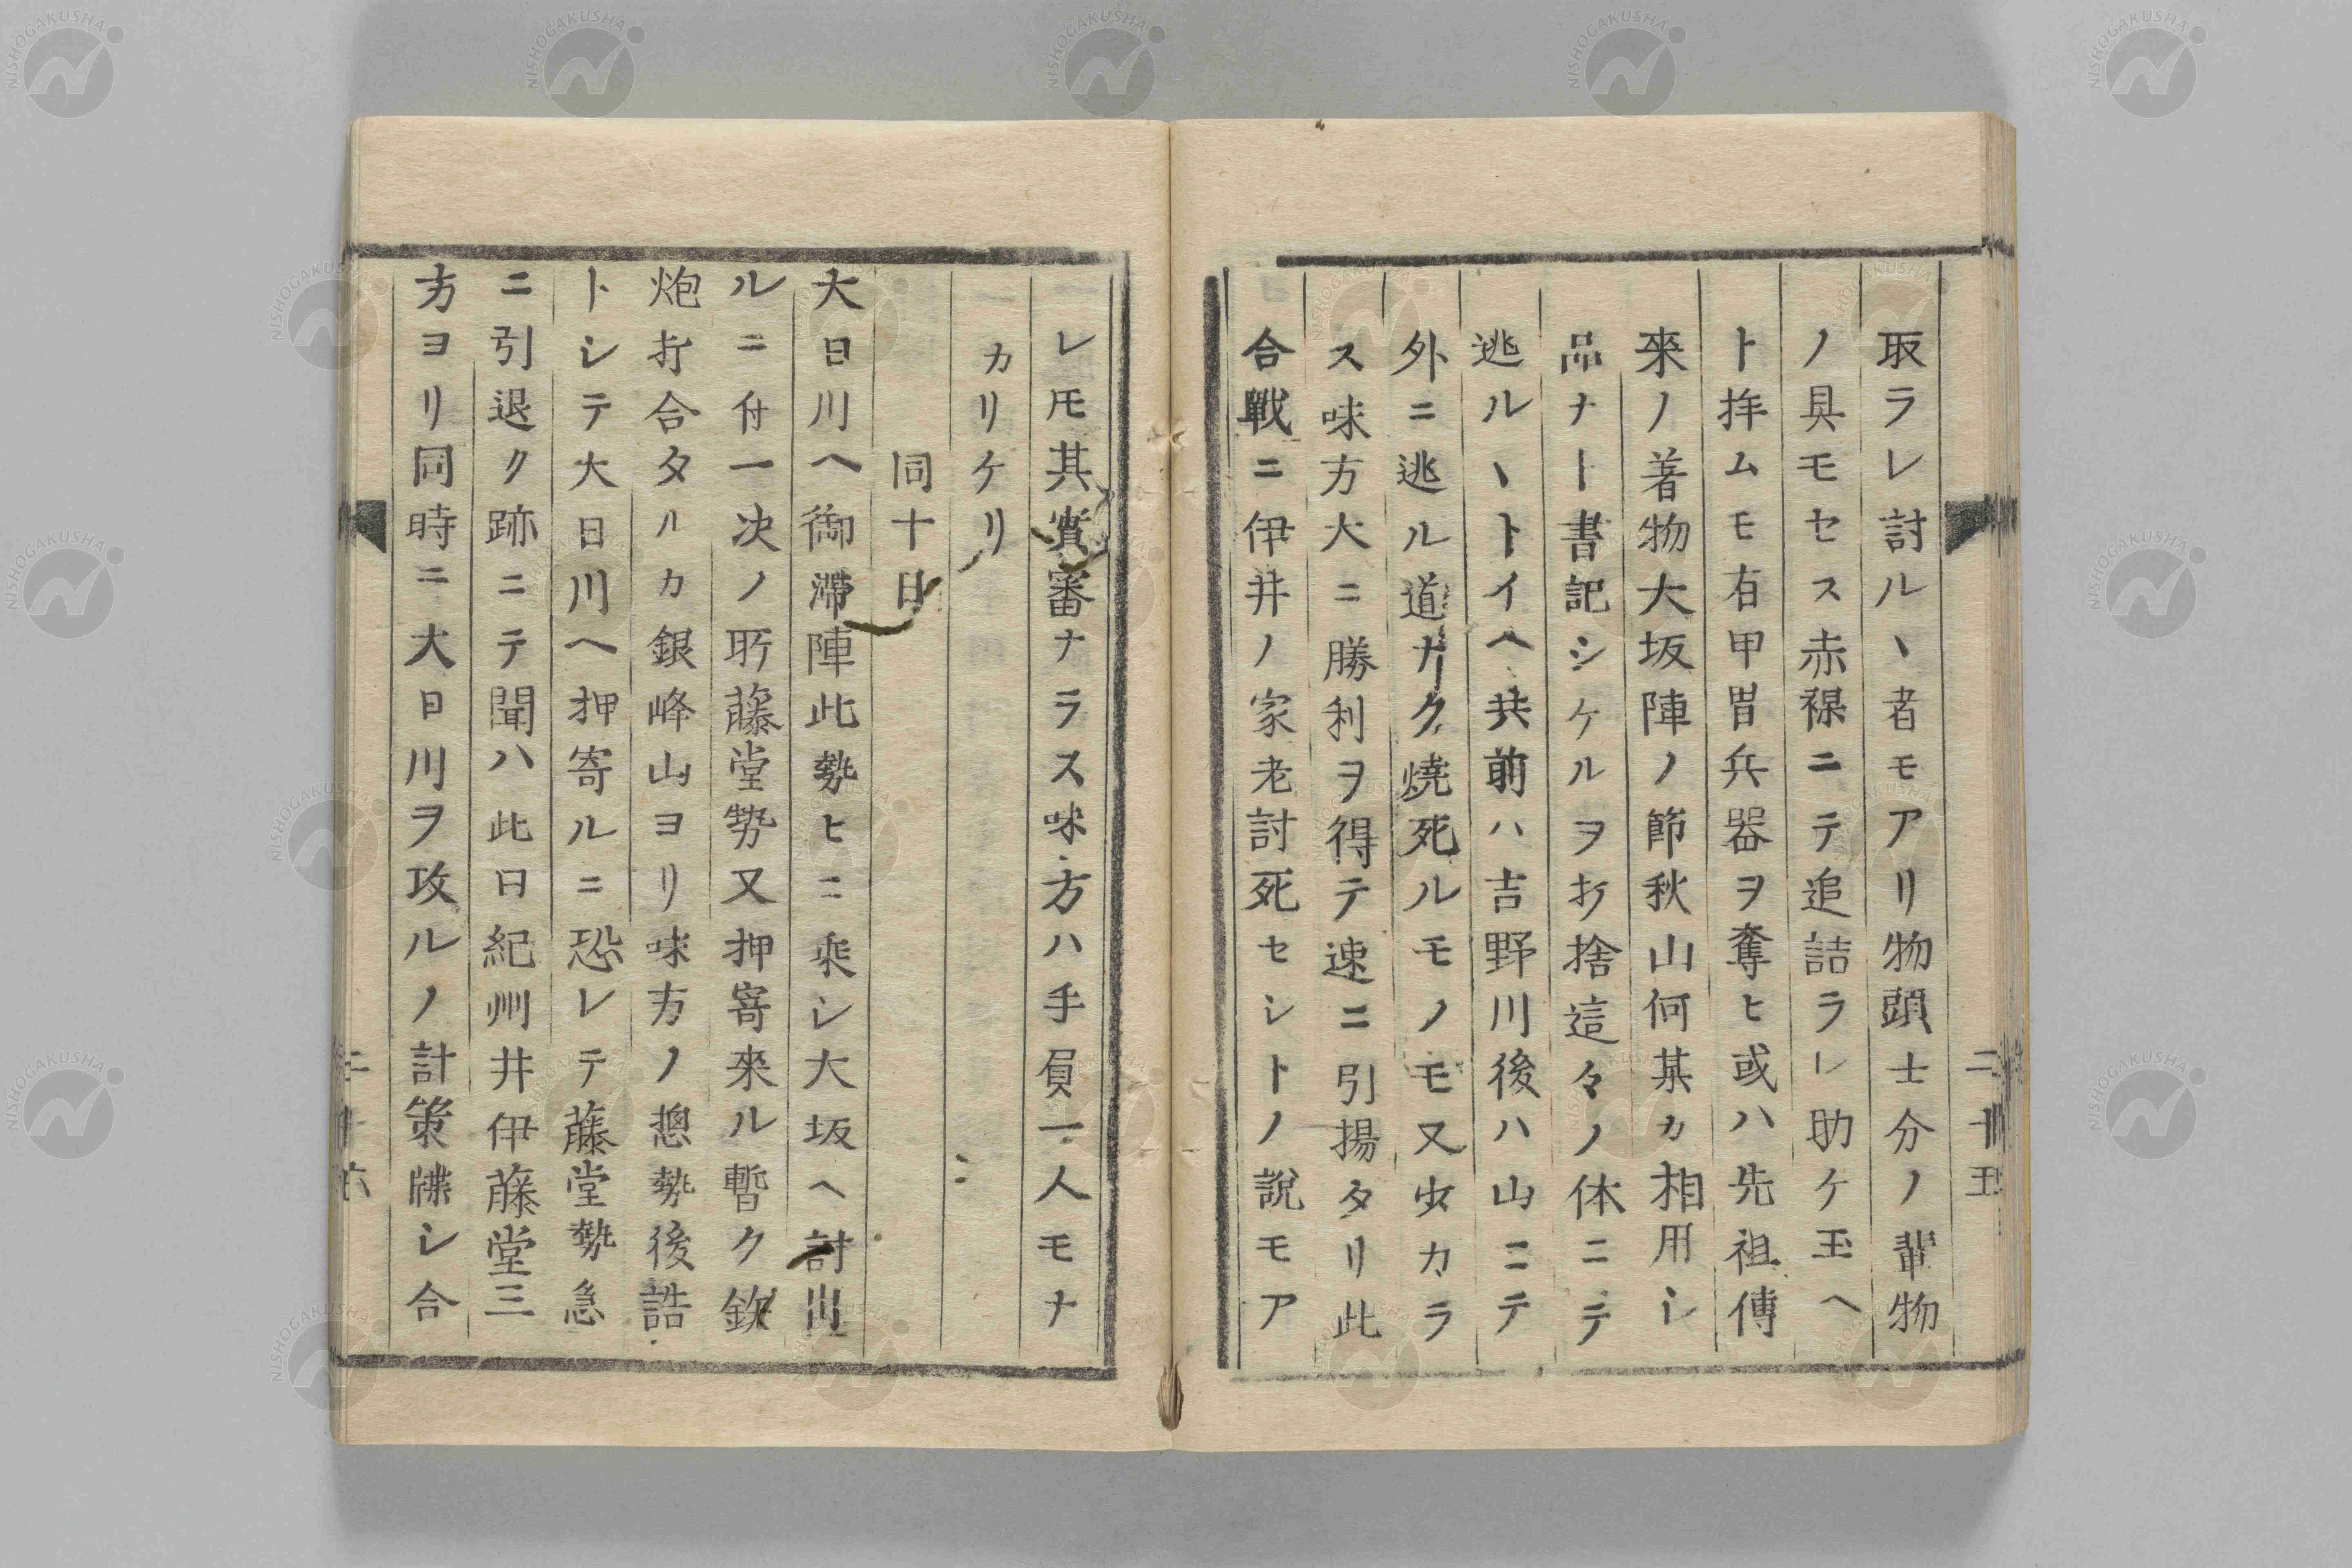 取ラレ討ルヽ者モアリ物頭士分ノ輩物
ノ具モセス赤裸ニテ追詰ラレ助ケ玉ヘ
ト拝ムモ有甲冑兵器ヲ奪ヒ或ハ先祖傳
來ノ著物大坂陣ノ節秋山何某カ相用シ
品ナト書記シケルヲ打捨這々ノ体ニテ
逃ルヽトイヘ共前ハ吉野川後ハ山ニテ
外ニ逃ル道ナク燒死ルモノモ又少カラ
ス味方大ニ勝利ヲ得テ速ニ引揚タリ此
合戦ニ伊井ノ家老討死セシトノ説モア
二十五
レ𪜈其實審ナラス味方ハ手負一人モナ
カリケリ
同十日
大日川ヘ御滯陣此勢ヒニ乗シ大坂ヘ討出
ルニ付一决ノ所藤堂勢又押寄來ル暫ク欽
炮打合タルカ銀峰山ヨリ味方ノ摠勢後詰
トシテ大日川ヘ押寄ルニ恐レテ藤堂勢急
ニ引退ク跡ニテ聞ハ此日紀州井伊藤堂三
方ヨリ同時ニ大日川ヲ攻ルノ計策牒シ合